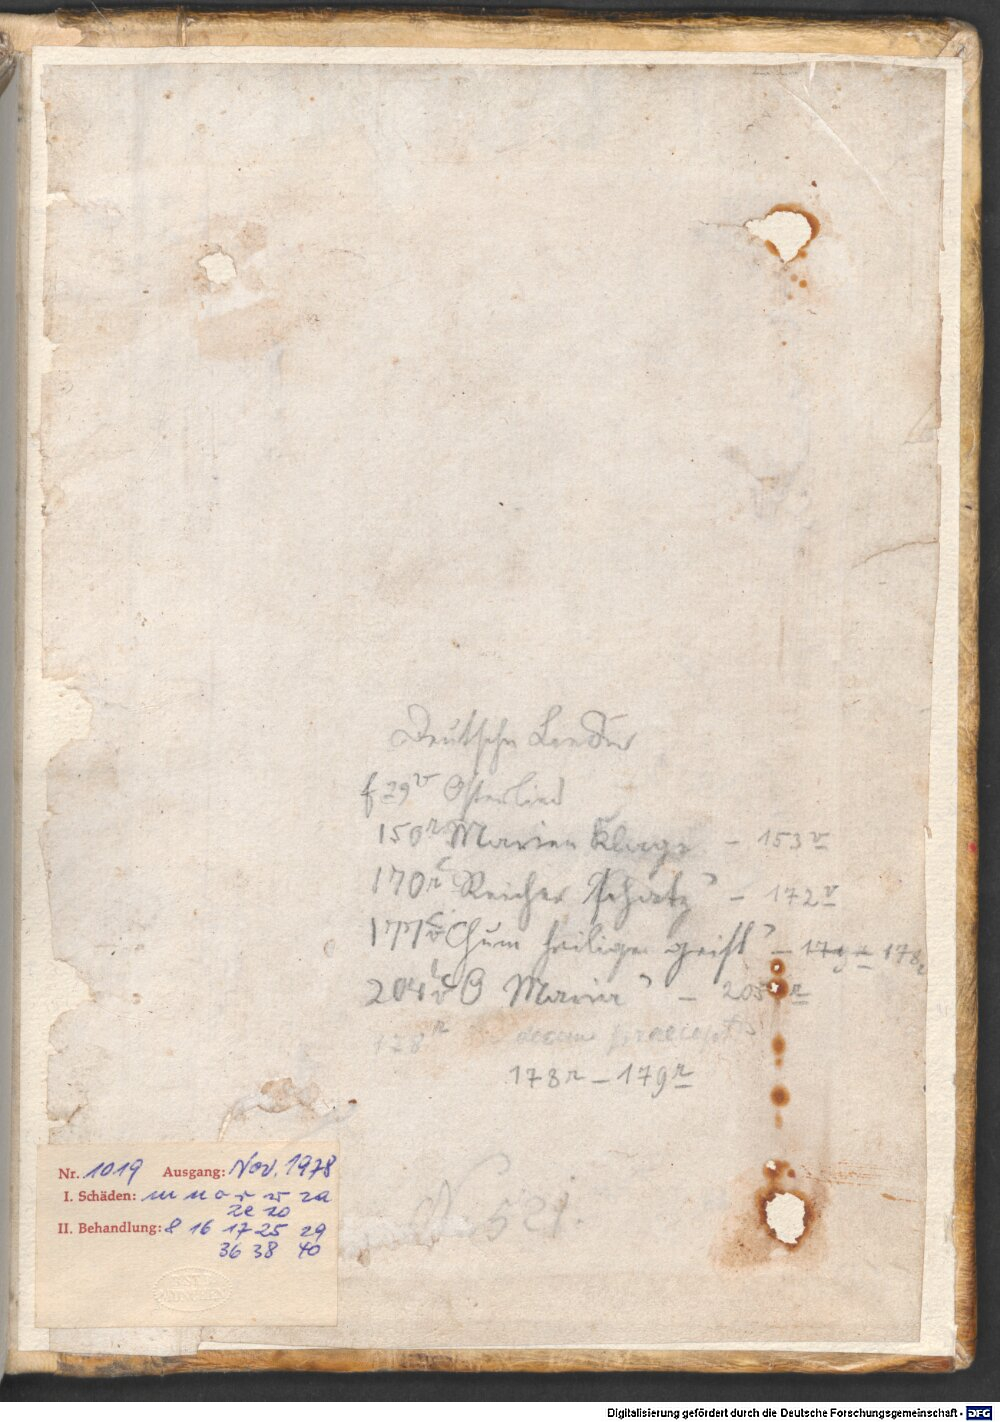 Deutsche Lieder
f 29v Osterlied
150r Marien Klage – 153v
170r "Reicher Schatz" – 172v
177v "Chum heiliger geist" – 178r
204v "O Maria" – 205r
178r decem praecepta
178r – 179r
No 521.
Nr. 1019 Ausgang: Nov. 1978
I. Schäden: m n o r v 2a
2e 20
II. Behandlung: 8 16 17 25 29
36 38 40
Digitalisierung gefördert durch die Deutsche Forschungsgemeinschaft - DFG